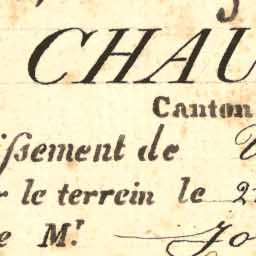 CHAU
Canton
iſsement de
r le terrein le 2
e Mr. Jo